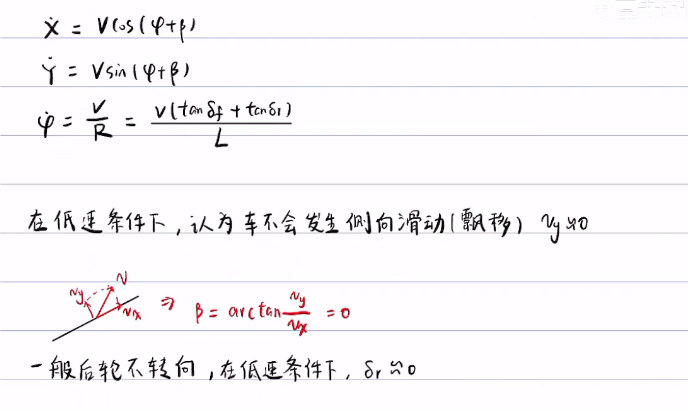 Ẋ = Vcos(φ+β)
Ẏ = Vsin(φ+β)
φ̇ = V/R = V(tanδf + tanδr)/L
在低速条件下,认为车不会发生侧向滑动(飘移) vy≈0
vy v vx ⇒ β = arctan vy/vx = 0
一般后轮不转向,在低速条件下, δr≈0